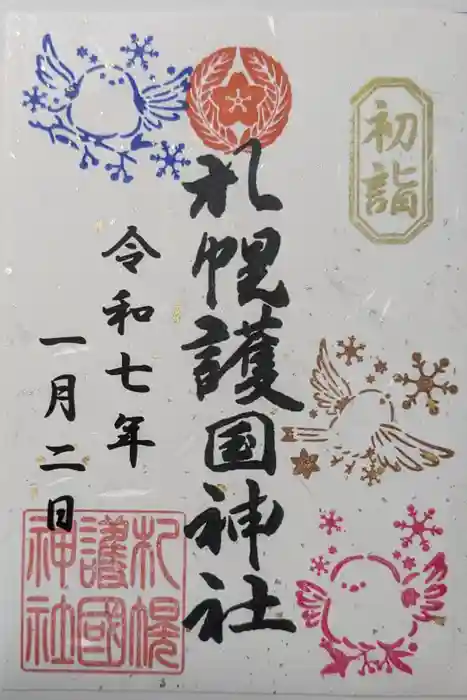 初詣
札幌護国神社
令和七年
一月二日
札幌
護國
神社